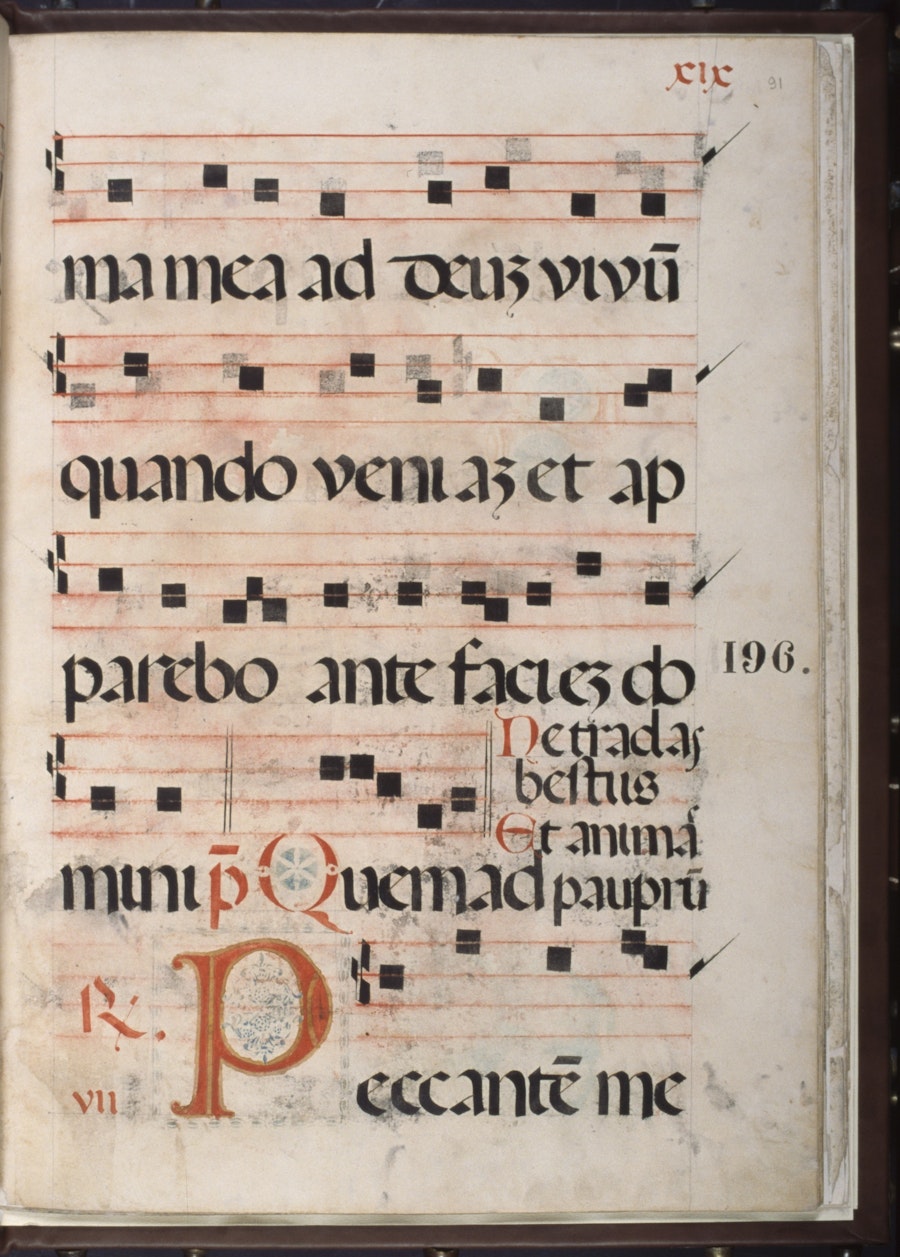 xix 91
ma mea ad deuʒ vivū
quando veniaʒ et ap
parebo ante facieʒ do
196.
Ne tradas
bestiis
Et animā
mini p̄ Quemad pauprū
℟.
vii
Peccantē me